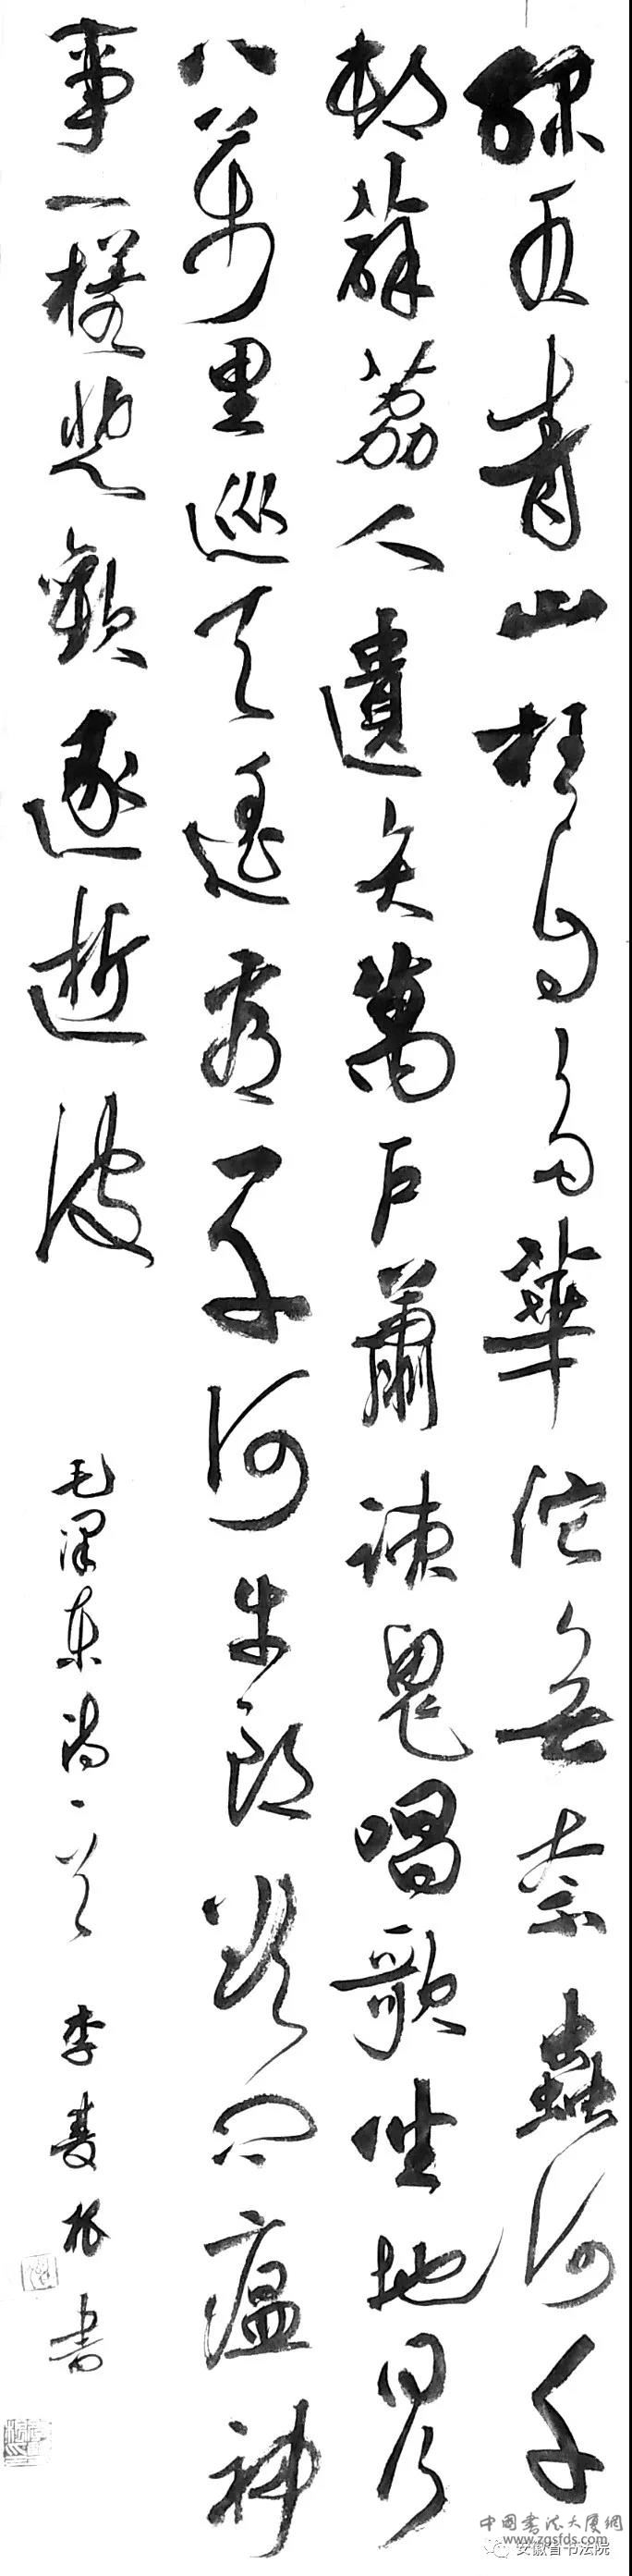 緑水青山枉自多華佗無奈蟲何千
村薜荔人遺矢萬户蕭疎鬼唱歌坐地日行
八萬里巡天遙看一千河牛郎欲問瘟神
事一樣悲歡逐逝波
毛澤東詩一首 李 書
中國書法大廈網
www.zgsfds.com
安徽省书法院